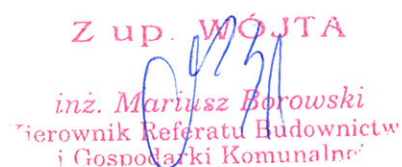 Z up. WÓJTA
inż. Mariusz Borowski
Kierownik Referatu Budownictw
i Gospodarki Komunalne